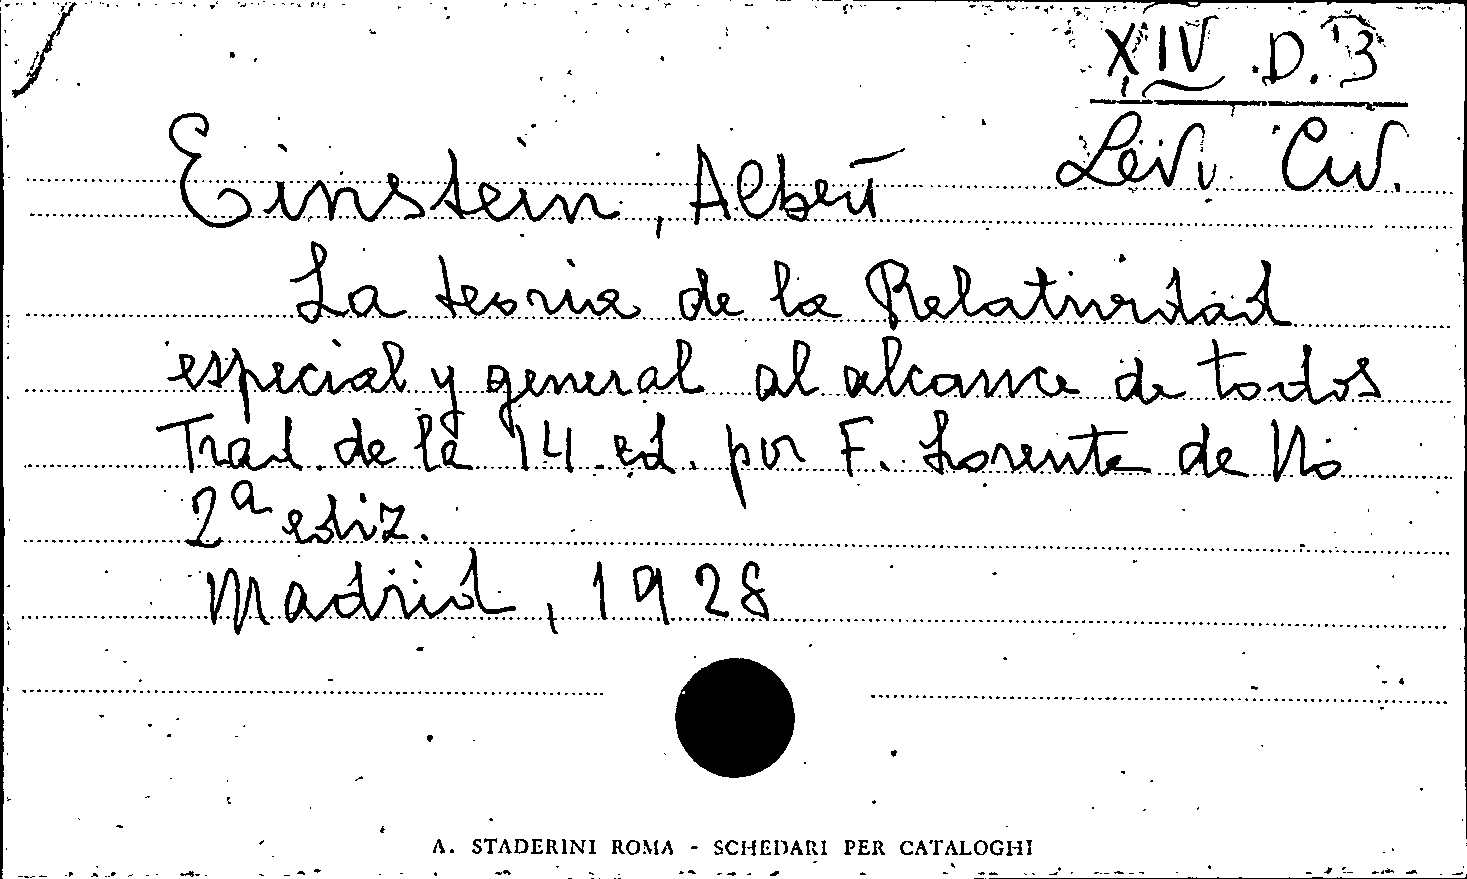 XIV D. 3
Levi Civ.
Einstein, Albert
La teoria de la Relatividad
especial y general al alcance de todos
Trad. de la 14 ed. por F. Lorente de No
2a ediz.
Madrid, 1928
A. STADERINI ROMA - SCHEDARI PER CATALOGHI